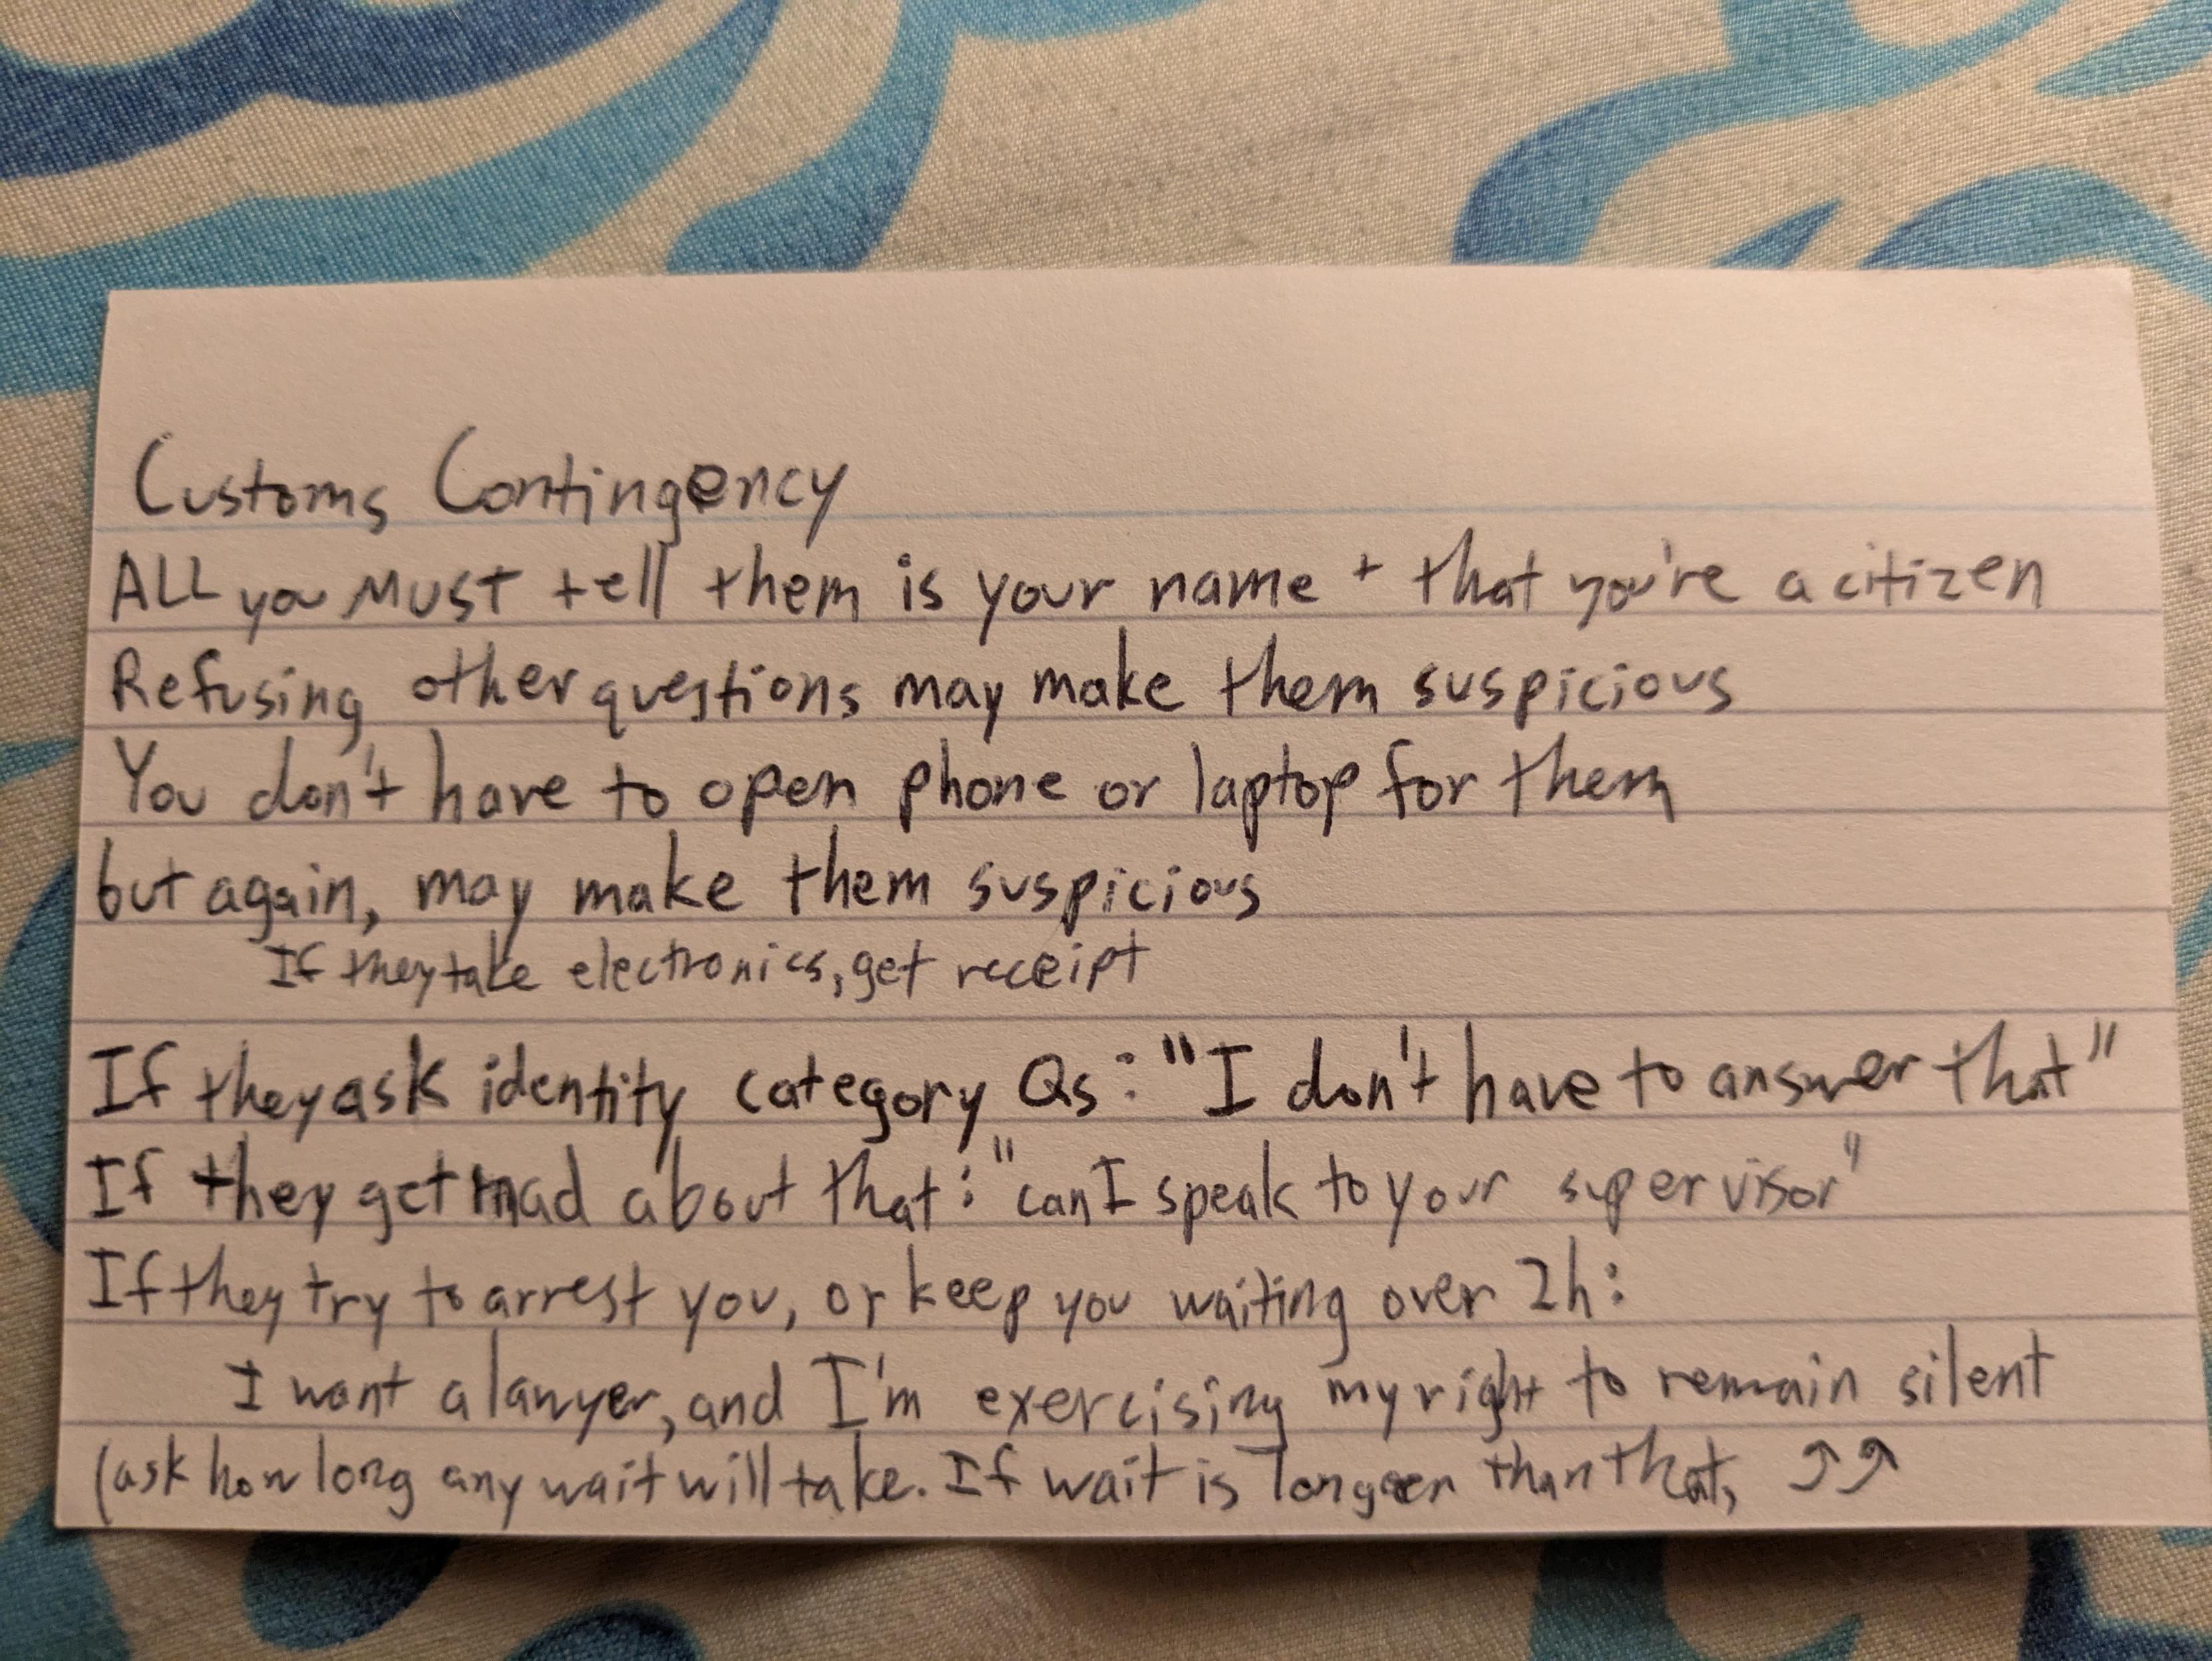 Customs Contingency
ALL you MUST tell them is your name + that you're a citizen
Refusing other questions may make them suspicious
You don't have to open phone or laptop for them
but again, may make them suspicious
If they take electronics, get receipt
If they ask identity category Qs: "I don't have to answer that"
If they get mad about that: "can I speak to your supervisor"
If they try to arrest you, or keep you waiting over 2h:
I want a lawyer, and I'm exercising my right to remain silent
(ask how long any wait will take. If wait is longer than that, ⤴⤴